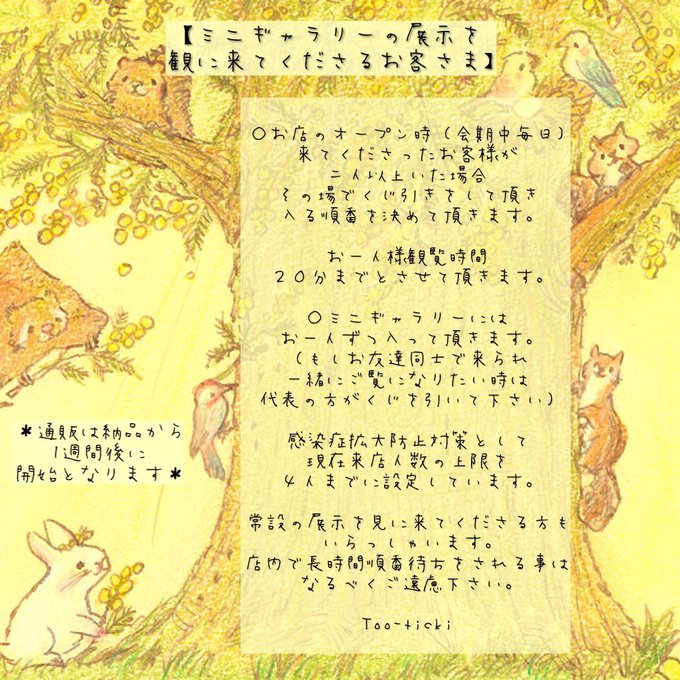 【ミニギャラリーの展示を
観に来てくださるお客さま】
〇お店のオープン時(会期中毎日)
来てくださったお客様が
二人以上いた場合
その場でくじ引きをして頂き
入る順番を決めて頂きます。
お一人様観覧時間
２０分までとさせて頂きます。
〇ミニギャラリーには
お一人ずつ入って頂きます。
(もしお友達同士で来られ
一緒にご覧になりたい時は
代表の方がくじを引いて下さい)
感染症拡大防止対策として
現在来店人数の上限を
４人までに設定しています。
常設の展示を見に来てくださる方も
いらっしゃいます。
店内で長時間順番待ちをされる事は
なるべくご遠慮下さい。
Too-ticki
*通販は納品から
1週間後に
開始となります*